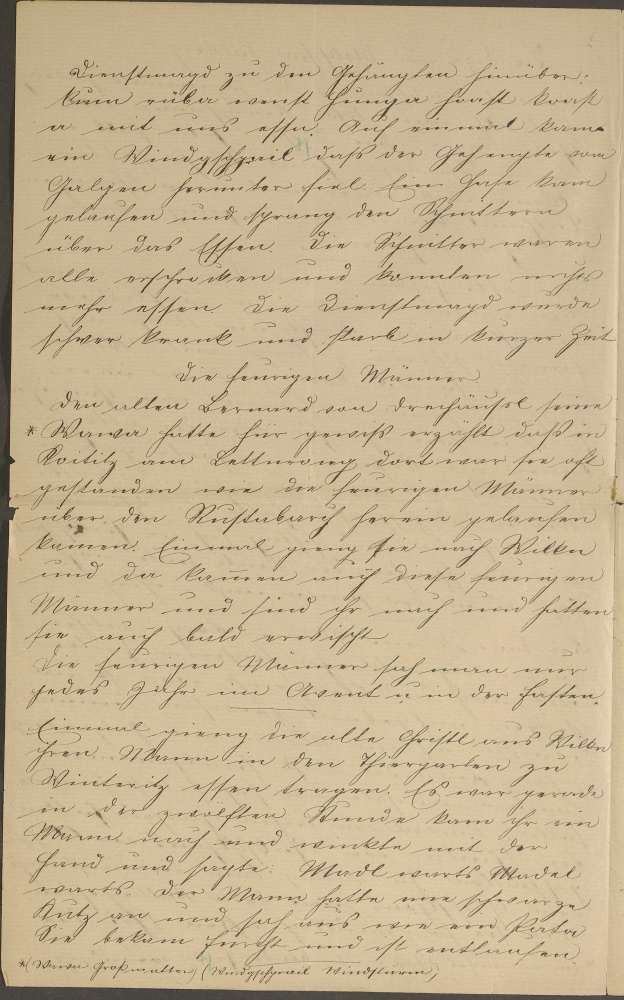 Dienstmagd zu den Gehängten hinüber:
kum rüba wenst Hunga host kost
a mit uns essn. Auf einmal kam
ein Windgschpreil daß der Gehengte vom
Galgen herunter fiel. Ein Hase kam
gelaufen und sprang den Schnittern
über das Essen. Die Schnitter waren
alle erschrocken und konnten nichts
mehr essen. Die Dienstmagd wurde
schwer krank und starb in kurzer Zeit
Die feurigen Männer.
Den alten Bernard von Dreihäusl seine
* Wawa hatte hür gewiß erzählt daß in
Koititz am dort war sie oft
gestanden wie die feurigen Männer
über den herein gelaufen
kamen. Einmal gieng sie nach Wilkn
und da kam̄en auch diese feurigen
Männer und sind ihr nach und hätten
sie auch bald erwischt.
Die feurigen Männer sah man nur
jedes Jahr im Avent u. in der Fasten.
Einmal gieng die alte Christl aus Wilkn
ihren Mann in den Thiergarten zu
Winteritz essen tragen. Es war gerade
in der zwölften Stunde kam ihr ein
Mann nach und winkte mit der
Hand und sagte: Madl warts Madel
warts. Der Mann hatte eine schwarze
Kutz an und sah aus wie ein Pater
Sie bekam Furcht und ist entlaufen.
*(Wawa Großmutter) (Windgschpreil Windsturm)